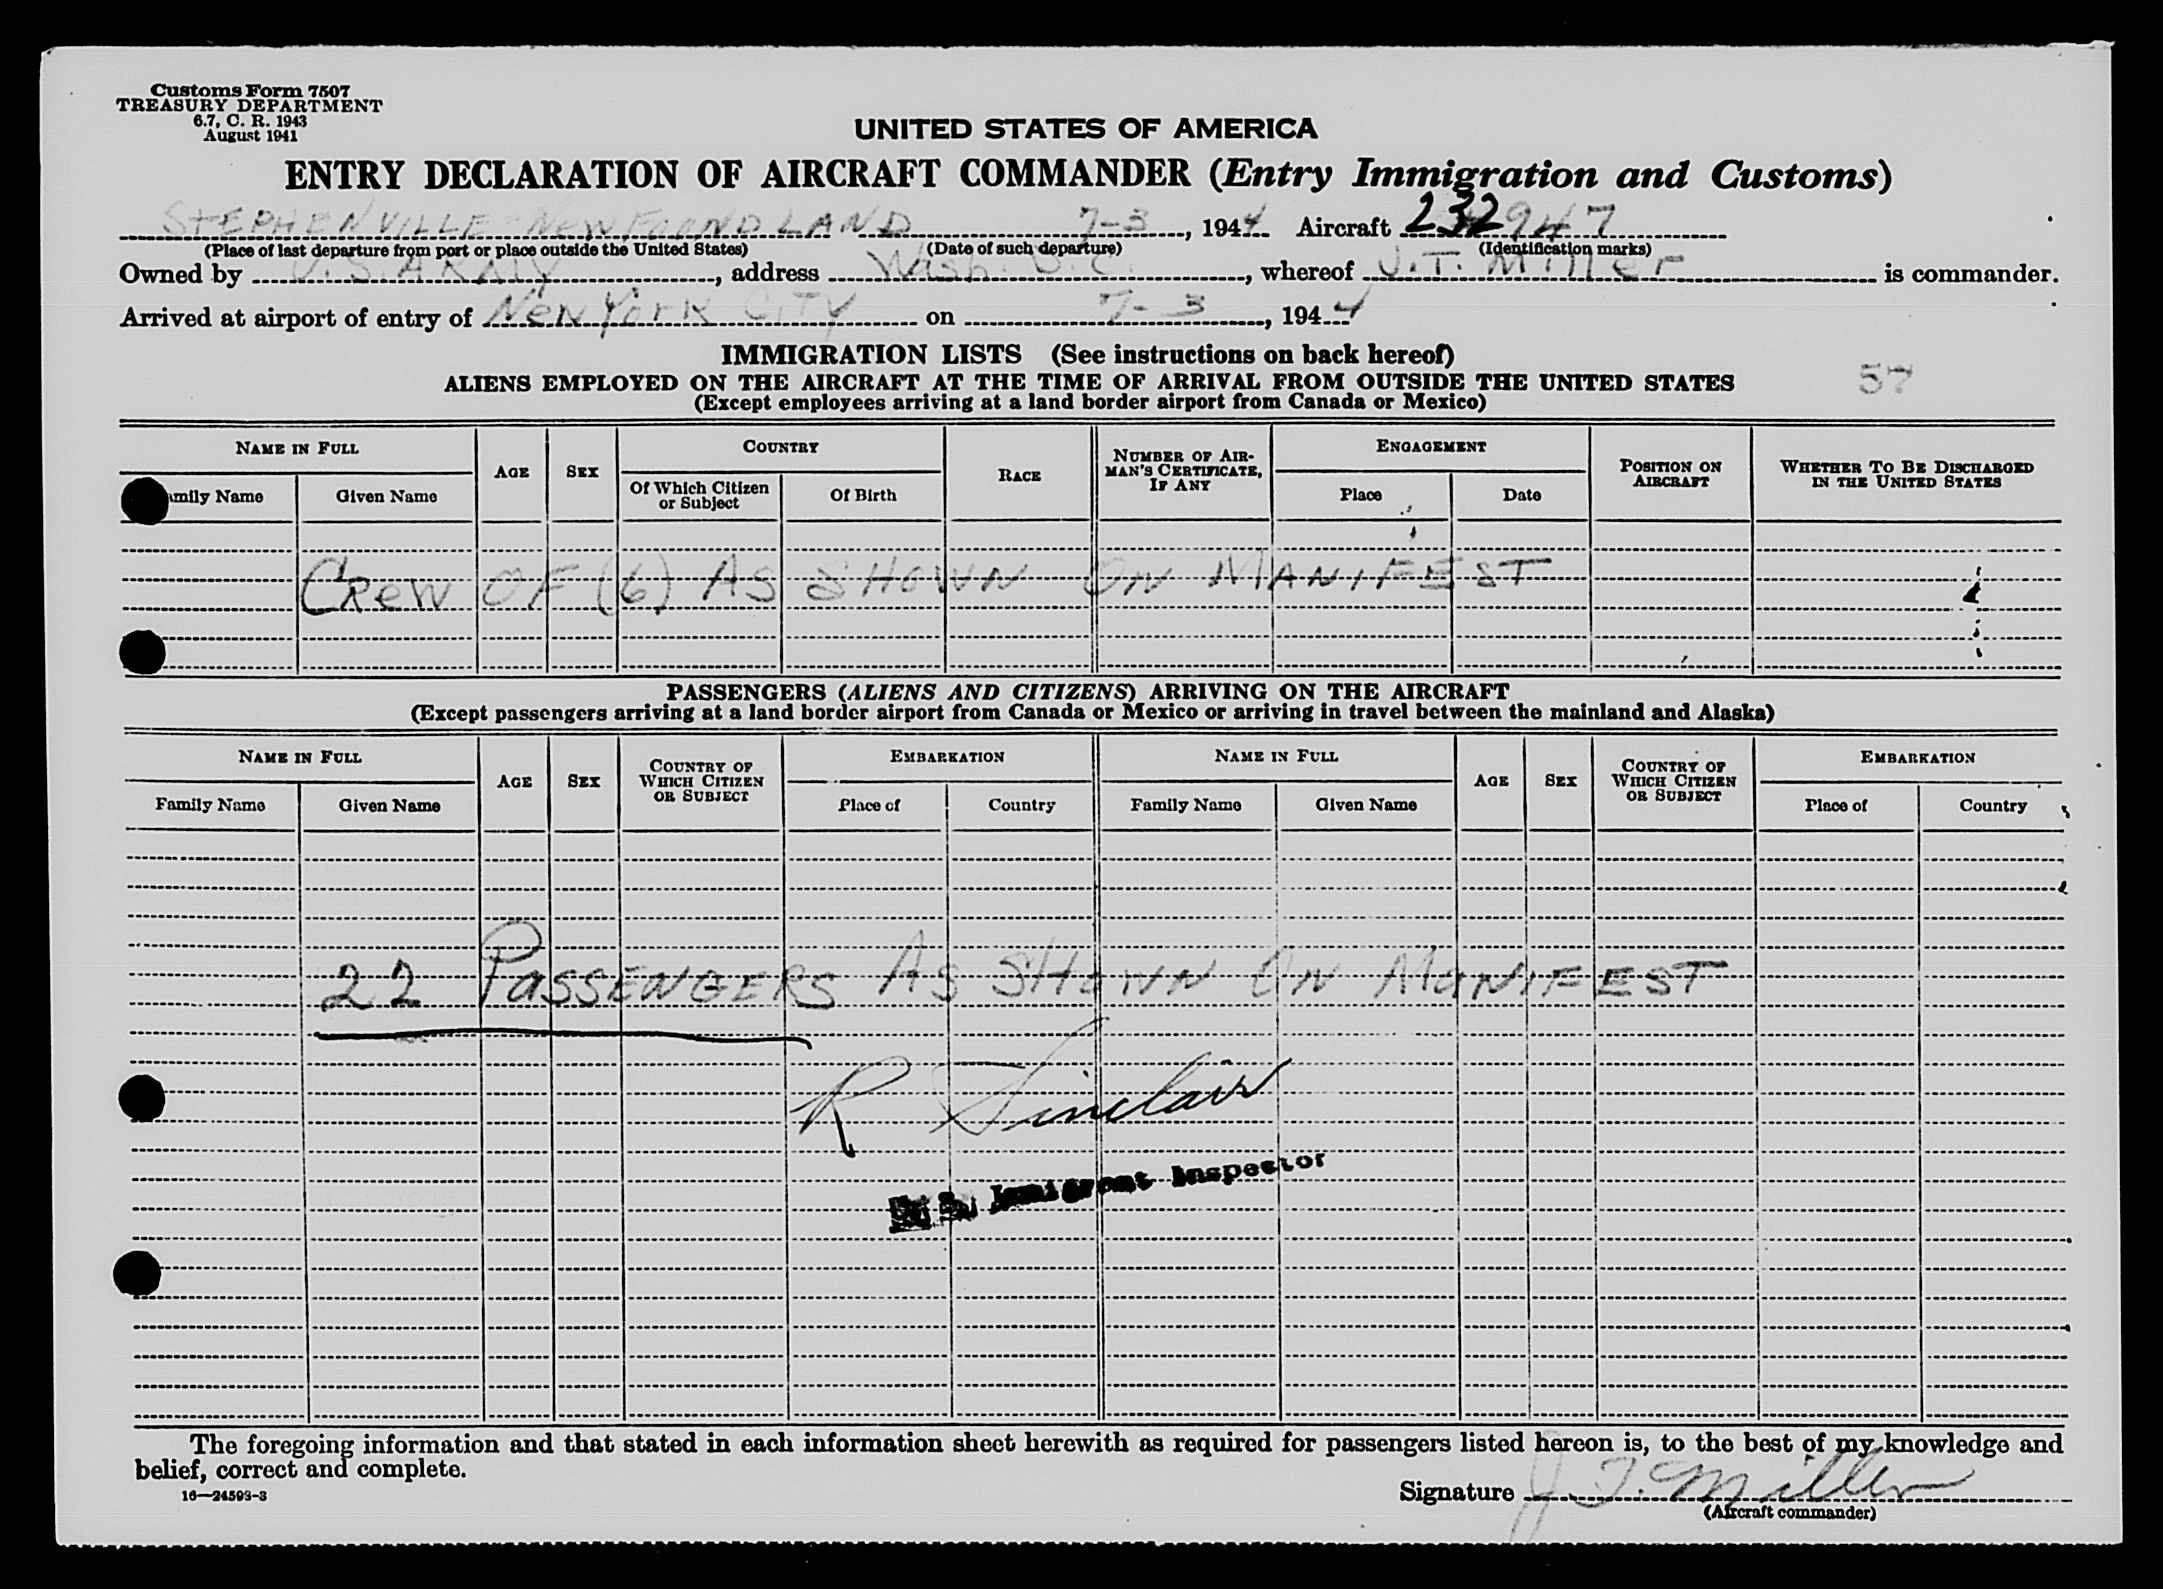 Customs Form 7507
TREASURY DEPARTMENT
6.7, C. R. 1943
August 1941
UNITED STATES OF AMERICA
ENTRY DECLARATION OF AIRCRAFT COMMANDER (Entry Immigration and Customs)
STEPHENVILLE NEWFOUNDLAND 7-3, 1944 Aircraft 232947
(Place of last departure from port or place outside the United States) (Date of such departure) (Identification marks)
Owned by U.S. ARMY, address Wash. D.C., whereof J.T. Miller is commander.
Arrived at airport of entry of New York CITY on 7-3, 1944
IMMIGRATION LISTS (See instructions on back hereof)
57
ALIENS EMPLOYED ON THE AIRCRAFT AT THE TIME OF ARRIVAL FROM OUTSIDE THE UNITED STATES
(Except employees arriving at a land border airport from Canada or Mexico)
NAME IN FULL AGE SEX COUNTRY RACE NUMBER OF AIRMAN'S CERTIFICATE, IF ANY ENGAGEMENT POSITION ON AIRCRAFT WHETHER TO BE DISCHARGED IN THE UNITED STATES
mily Name Given Name Of Which Citizen or Subject Of Birth Place Date
CREW OF (6) AS SHOWN ON MANIFEST
PASSENGERS (ALIENS AND CITIZENS) ARRIVING ON THE AIRCRAFT
(Except passengers arriving at a land border airport from Canada or Mexico or arriving in travel between the mainland and Alaska)
NAME IN FULL AGE SEX COUNTRY OF WHICH CITIZEN OR SUBJECT EMBARKATION NAME IN FULL AGE SEX COUNTRY OF WHICH CITIZEN OR SUBJECT EMBARKATION
Family Name Given Name Place of Country Family Name Given Name Place of Country
22 PASSENGERS AS SHOWN ON MANIFEST
R Sinclair
U. S. Immigrant Inspector
The foregoing information and that stated in each information sheet herewith as required for passengers listed hereon is, to the best of my knowledge and
belief, correct and complete.
16—24593-3
Signature J. T. Miller
(Aircraft commander)